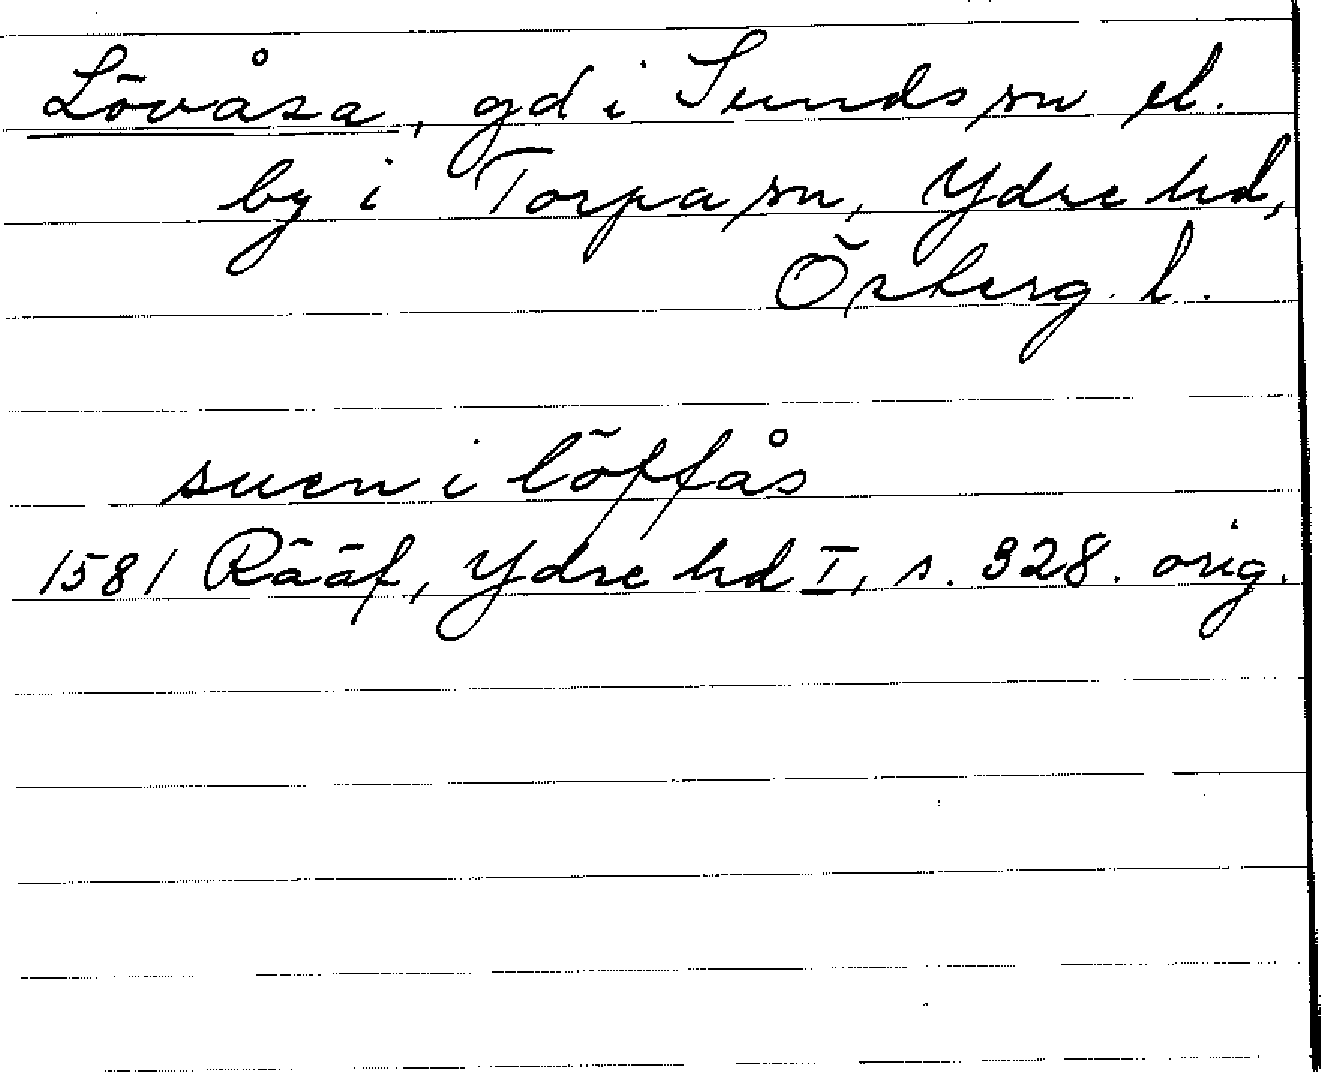 Lövåsa, gd i Sunds sn el.
by i Torpa sn, Ydre hd,
Österg. l.
suen i löffås
1581 Rääf, Ydre hd I, s. 328. orig.